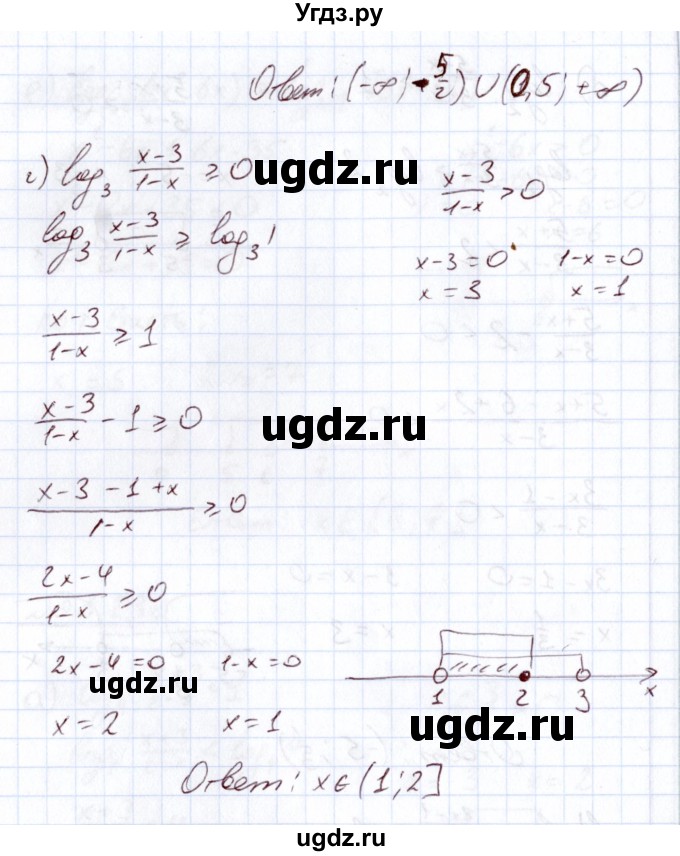 Угдз.ру
Ответ: (-∞; -5/2) ∪ (0,5; +∞)
г) log₃ (x-3)/(1-x) ≥ 0
(x-3)/(1-x) > 0
ugdz.ru
ugdz.ru
log₃ (x-3)/(1-x) ≥ log₃ 1
x-3=0 1-x=0
x=3 x=1
(x-3)/(1-x) ≥ 1
(x-3)/(1-x) - 1 ≥ 0
ugdz.ru
ugdz.ru
(x-3-1+x)/(1-x) ≥ 0
(2x-4)/(1-x) ≥ 0
2x-4=0 1-x=0
ugdz.ru
1 2 3 x
x=2 x=1
ugdz.ru
Ответ: x∈(1;2]
ugdz.ru